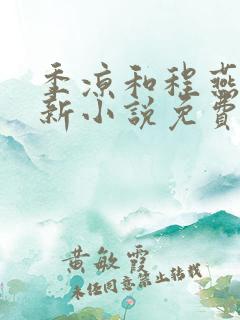 季凉和程燕
新小说免费
黄敏霞
未经同意禁止转载